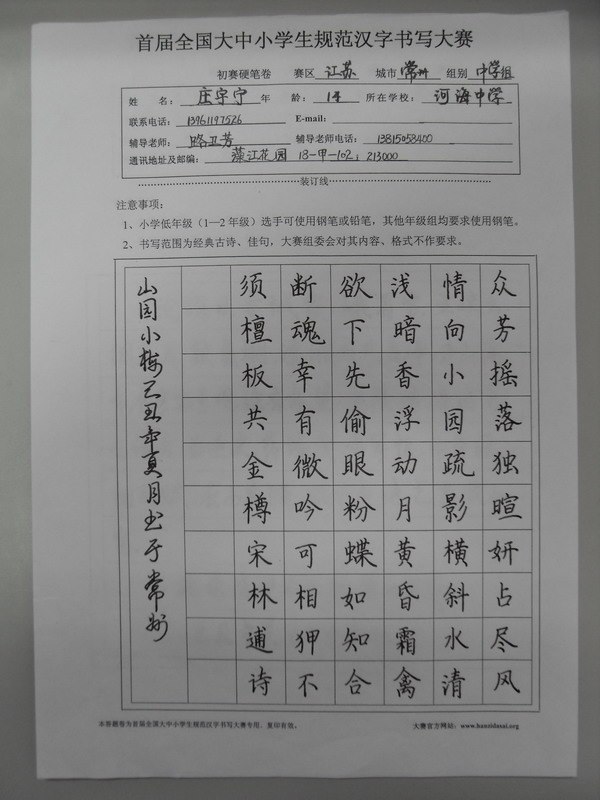 首届全国大中小学生规范汉字书写大赛
初赛硬笔卷 赛区 江苏 城市 常州 组别 中学组
姓 名： 庄宇宁 年 龄： 14 所在学校： 河海中学
联系电话： 13961197526 E-mail：
辅导老师： 路卫芳 辅导老师电话： 13815058400
通讯地址及邮编： 藻江花园 18-甲-102；213000
装订线
注意事项：
1、小学低年级（1—2 年级）选手可使用钢笔或铅笔，其他年级组均要求使用钢笔。
2、书写范围为经典古诗、佳句，大赛组委会对其内容、格式不作要求。
众芳摇落独暄妍占尽风
情向小园疏影横斜水清
浅暗香浮动月黄昏霜禽
欲下先偷眼粉蝶如知合
断魂幸有微吟可相狎不
须檀板共金樽宋林逋诗
山园小梅己丑年夏月书于常州
本答题卷为首届全国大中小学生规范汉字书写大赛专用，复印有效。
大赛官方网站：www.hanzidasai.org